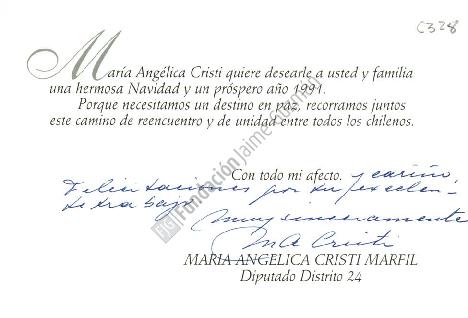 C328
María Angélica Cristi quiere desearle a usted y familia
una hermosa Navidad y un próspero año 1991.
Porque necesitamos un destino en paz, recorramos juntos
este camino de reencuentro y de unidad entre todos los chilenos.
Fundación Jaime Guzmán
Con todo mi afecto. y cariño
Felicitaciones por su excelen-
te trabajo
Muy sinceramente
MA Cristi
MARIA ANGELICA CRISTI MARFIL
Diputado Distrito 24